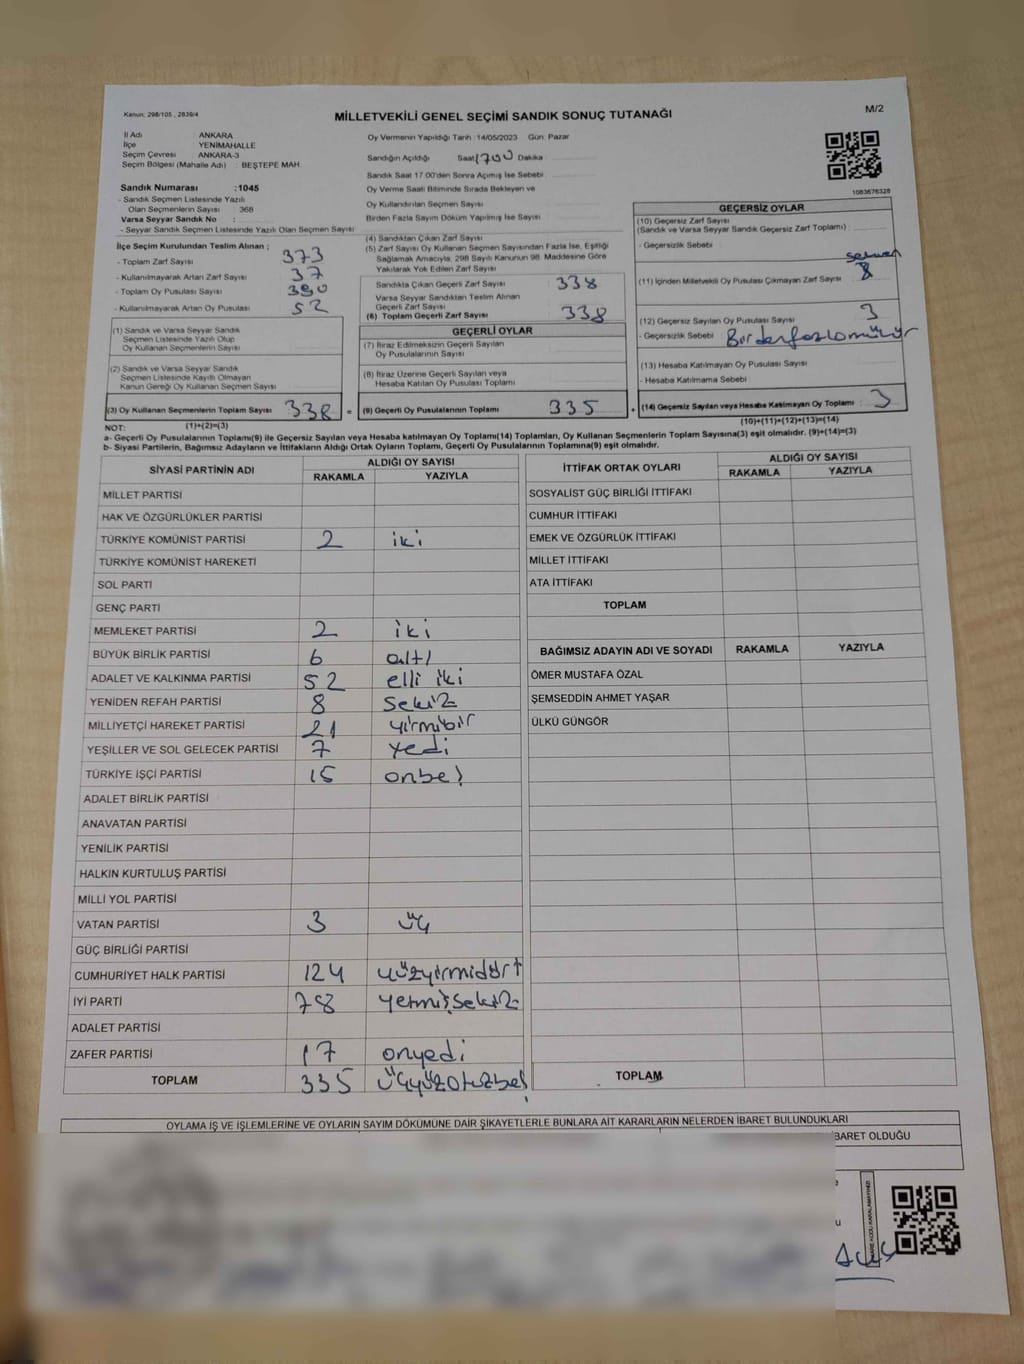 Kanun: 298/105 , 2839/4
MİLLETVEKİLİ GENEL SEÇİMİ SANDIK SONUÇ TUTANAĞI
M/2
İl Adı ANKARA
İlçe YENİMAHALLE
Seçim Çevresi ANKARA-3
Seçim Bölgesi (Mahalle Adı) : BEŞTEPE MAH.
Oy Vermenin Yapıldığı Tarih : 14/05/2023 Gün: Pazar
Sandığın Açıldığı Saat 1700 Dakika :
Sandık Saat 17.00'den Sonra Açımış İse Sebebi :
Oy Verme Saati Bitiminde Sırada Bekleyen ve
Oy Kullandırılan Seçmen Sayısı
Birden Fazla Sayım Döküm Yapılmış İse Sayısı
Sandık Numarası :1045
- Sandık Seçmen Listesinde Yazılı
Olan Seçmenlerin Sayısı : 368
Varsa Seyyar Sandık No :
- Seyyar Sandık Seçmen Listesinde Yazılı Olan Seçmen Sayısı :
1083676328
İlçe Seçim Kurulundan Teslim Alınan ;
- Toplam Zarf Sayısı 373
- Kullanılmayarak Artan Zarf Sayısı 37
- Toplam Oy Pusulası Sayısı 390
- Kullanılmayarak Artan Oy Pusulası 52
(1) Sandık ve Varsa Seyyar Sandık
Seçmen Listesinde Yazılı Olup
Oy Kullanan Seçmenlerin Sayısı
(2) Sandık ve Varsa Seyyar Sandık
Seçmen Listesinde Kayıtlı Olmayan
Kanun Gereği Oy Kullanan Seçmen Sayısı
(3) Oy Kullanan Seçmenlerin Toplam Sayısı 338
(1)+(2)=(3)
(4) Sandıktan Çıkan Zarf Sayısı
(5) Zarf Sayısı Oy Kullanan Seçmen Sayısından Fazla İse, Eşitliği
Sağlamak Amacıyla, 298 Sayılı Kanunun 98. Maddesine Göre
Yakılarak Yok Edilen Zarf Sayısı
Sandıkta Çıkan Geçerli Zarf Sayısı 338
Varsa Seyyar Sandıktan Teslim Alınan
Geçerli Zarf Sayısı
(6) Toplam Geçerli Zarf Sayısı 338
GEÇERLİ OYLAR
(7) İtiraz Edilmeksizin Geçerli Sayılan
Oy Pusulalarının Sayısı
(8) İtiraz Üzerine Geçerli Sayılan veya
Hesaba Katılan Oy Pusulası Toplamı
= (9) Geçerli Oy Pusulalarının Toplamı 335
GEÇERSİZ OYLAR
(10) Geçersiz Zarf Sayısı
(Sandık ve Varsa Seyyar Sandık Geçersiz Zarf Toplamı) :
- Geçersizlik Sebebi
(11) İçinden Milletvekili Oy Pusulası Çıkmayan Zarf Sayısı 8
(12) Geçersiz Sayılan Oy Pusulası Sayısı 3
- Geçersizlik Sebebi
(13) Hesaba Katılmayan Oy Pusulası Sayısı
- Hesaba Katılmama Sebebi
+ (14) Geçersiz Sayılan veya Hesaba Katılmayan Oy Toplamı : 3
(10)+(11)+(12)+(13)=(14)
NOT:
a- Geçerli Oy Pusulalarının Toplamı(9) ile Geçersiz Sayılan veya Hesaba katılmayan Oy Toplam(14) Toplamları, Oy Kullanan Seçmenlerin Toplam Sayısına(3) eşit olmalıdır. (9)+(14)=(3)
b- Siyasi Partilerin, Bağımsız Adayların ve İttifakların Aldığı Ortak Oyların Toplamı, Geçerli Oy Pusulalarının Toplamına(9) eşit olmalıdır.
SİYASİ PARTİNİN ADI ALDIĞI OY SAYISI
RAKAMLA YAZIYLA
MİLLET PARTİSİ
HAK VE ÖZGÜRLÜKLER PARTİSİ
TÜRKİYE KOMÜNİST PARTİSİ 2 iki
TÜRKİYE KOMÜNİST HAREKETİ
SOL PARTİ
GENÇ PARTİ
MEMLEKET PARTİSİ 2 iki
BÜYÜK BİRLİK PARTİSİ 6 altı
ADALET VE KALKINMA PARTİSİ 52 elli iki
YENİDEN REFAH PARTİSİ 8 sekiz
MİLLİYETÇİ HAREKET PARTİSİ 21 yirmibir
YEŞİLLER VE SOL GELECEK PARTİSİ 7 yedi
TÜRKİYE İŞÇİ PARTİSİ 15 onbeş
ADALET BİRLİK PARTİSİ
ANAVATAN PARTİSİ
YENİLİK PARTİSİ
HALKIN KURTULUŞ PARTİSİ
MİLLİ YOL PARTİSİ
VATAN PARTİSİ 3 üç
GÜÇ BİRLİĞİ PARTİSİ
CUMHURİYET HALK PARTİSİ 124 yüzyirmidört
İYİ PARTİ 78 yetmişsekiz
ADALET PARTİSİ
ZAFER PARTİSİ 17 onyedi
TOPLAM 335 üçyüzotuzbeş
İTTİFAK ORTAK OYLARI ALDIĞI OY SAYISI
RAKAMLA YAZIYLA
SOSYALİST GÜÇ BİRLİĞİ İTTİFAKI
CUMHUR İTTİFAKI
EMEK VE ÖZGÜRLÜK İTTİFAKI
MİLLET İTTİFAKI
ATA İTTİFAKI
TOPLAM
BAĞIMSIZ ADAYIN ADI VE SOYADI RAKAMLA YAZIYLA
ÖMER MUSTAFA ÖZAL
ŞEMSEDDİN AHMET YAŞAR
ÜLKÜ GÜNGÖR
TOPLAM
OYLAMA İŞ VE İŞLEMLERİNE VE OYLARIN SAYIM DÖKÜMÜNE DAİR ŞİKAYETLERLE BUNLARA AİT KARARLARIN NELERDEN İBARET BULUNDUKLARI
İBARET OLDUĞU